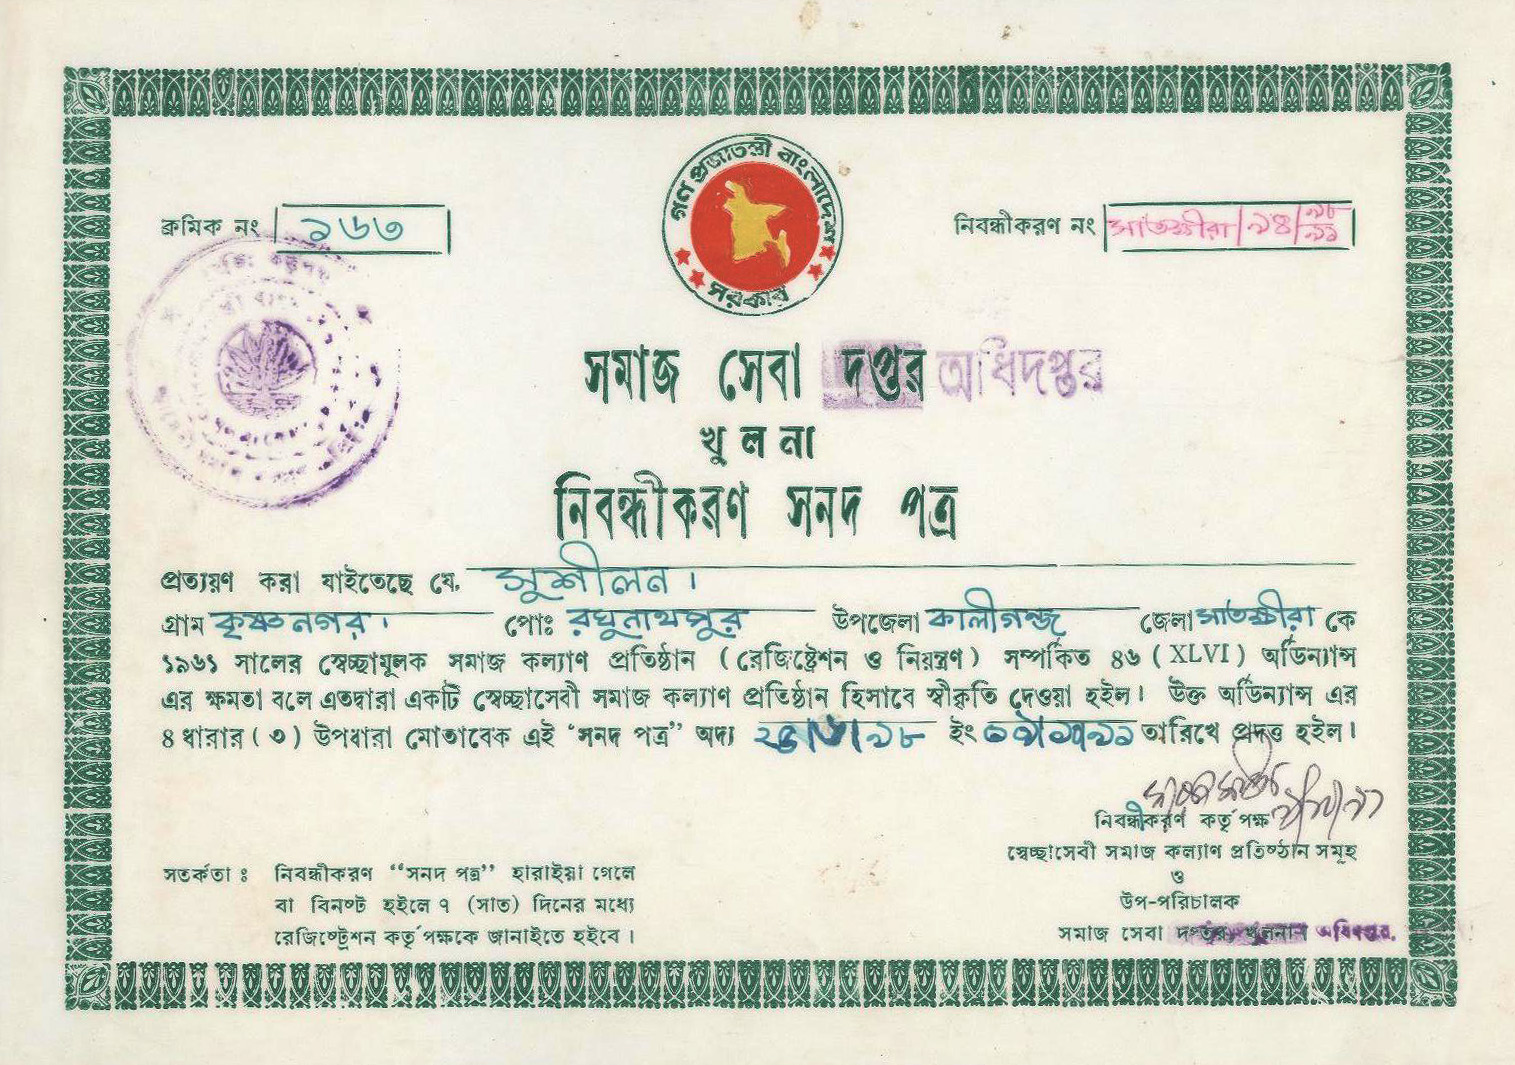 গণ প্রজাতন্ত্রী বাংলাদেশ
সরকার
ক্রমিক নং ১৬৩
নিবন্ধীকরণ নং সাতক্ষীরা/৯৪/৯৮/৯১
সমাজ সেবা দপ্তর অধিদপ্তর
খুলনা
নিবন্ধীকরণ সনদ পত্র
প্রত্যয়ণ করা যাইতেছে যে, সুশীলন।
গ্রাম কৃষ্ণনগর। পোঃ রঘুনাথপুর উপজেলা কালীগন্জ জেলা সাতক্ষীরা কে
১৯৬১ সালের স্বেচ্ছামূলক সমাজ কল্যাণ প্রতিষ্ঠান (রেজিষ্ট্রেশন ও নিয়ন্ত্রণ) সম্পর্কিত ৪৬ (XLVI) অর্ডিন্যান্স
এর ক্ষমতা বলে এতদ্বারা একটি স্বেচ্ছাসেবী সমাজ কল্যাণ প্রতিষ্ঠান হিসাবে স্বীকৃতি দেওয়া হইল। উক্ত অর্ডিন্যান্স এর
৪ ধারার (৩) উপধারা মোতাবেক এই "সনদ পত্র" অদ্য ইং তারিখে প্রদত্ত হইল।
নিবন্ধীকরণ কর্তৃপক্ষ
স্বেচ্ছাসেবী সমাজ কল্যাণ প্রতিষ্ঠান সমূহ
ও
উপ-পরিচালক
সমাজ সেবা অধিদপ্তর,
সতর্কতা ঃ নিবন্ধীকরণ "সনদ পত্র" হারাইয়া গেলে
বা বিনষ্ট হইলে ৭ (সাত) দিনের মধ্যে
রেজিষ্ট্রেশন কর্তৃপক্ষকে জানাইতে হইবে।